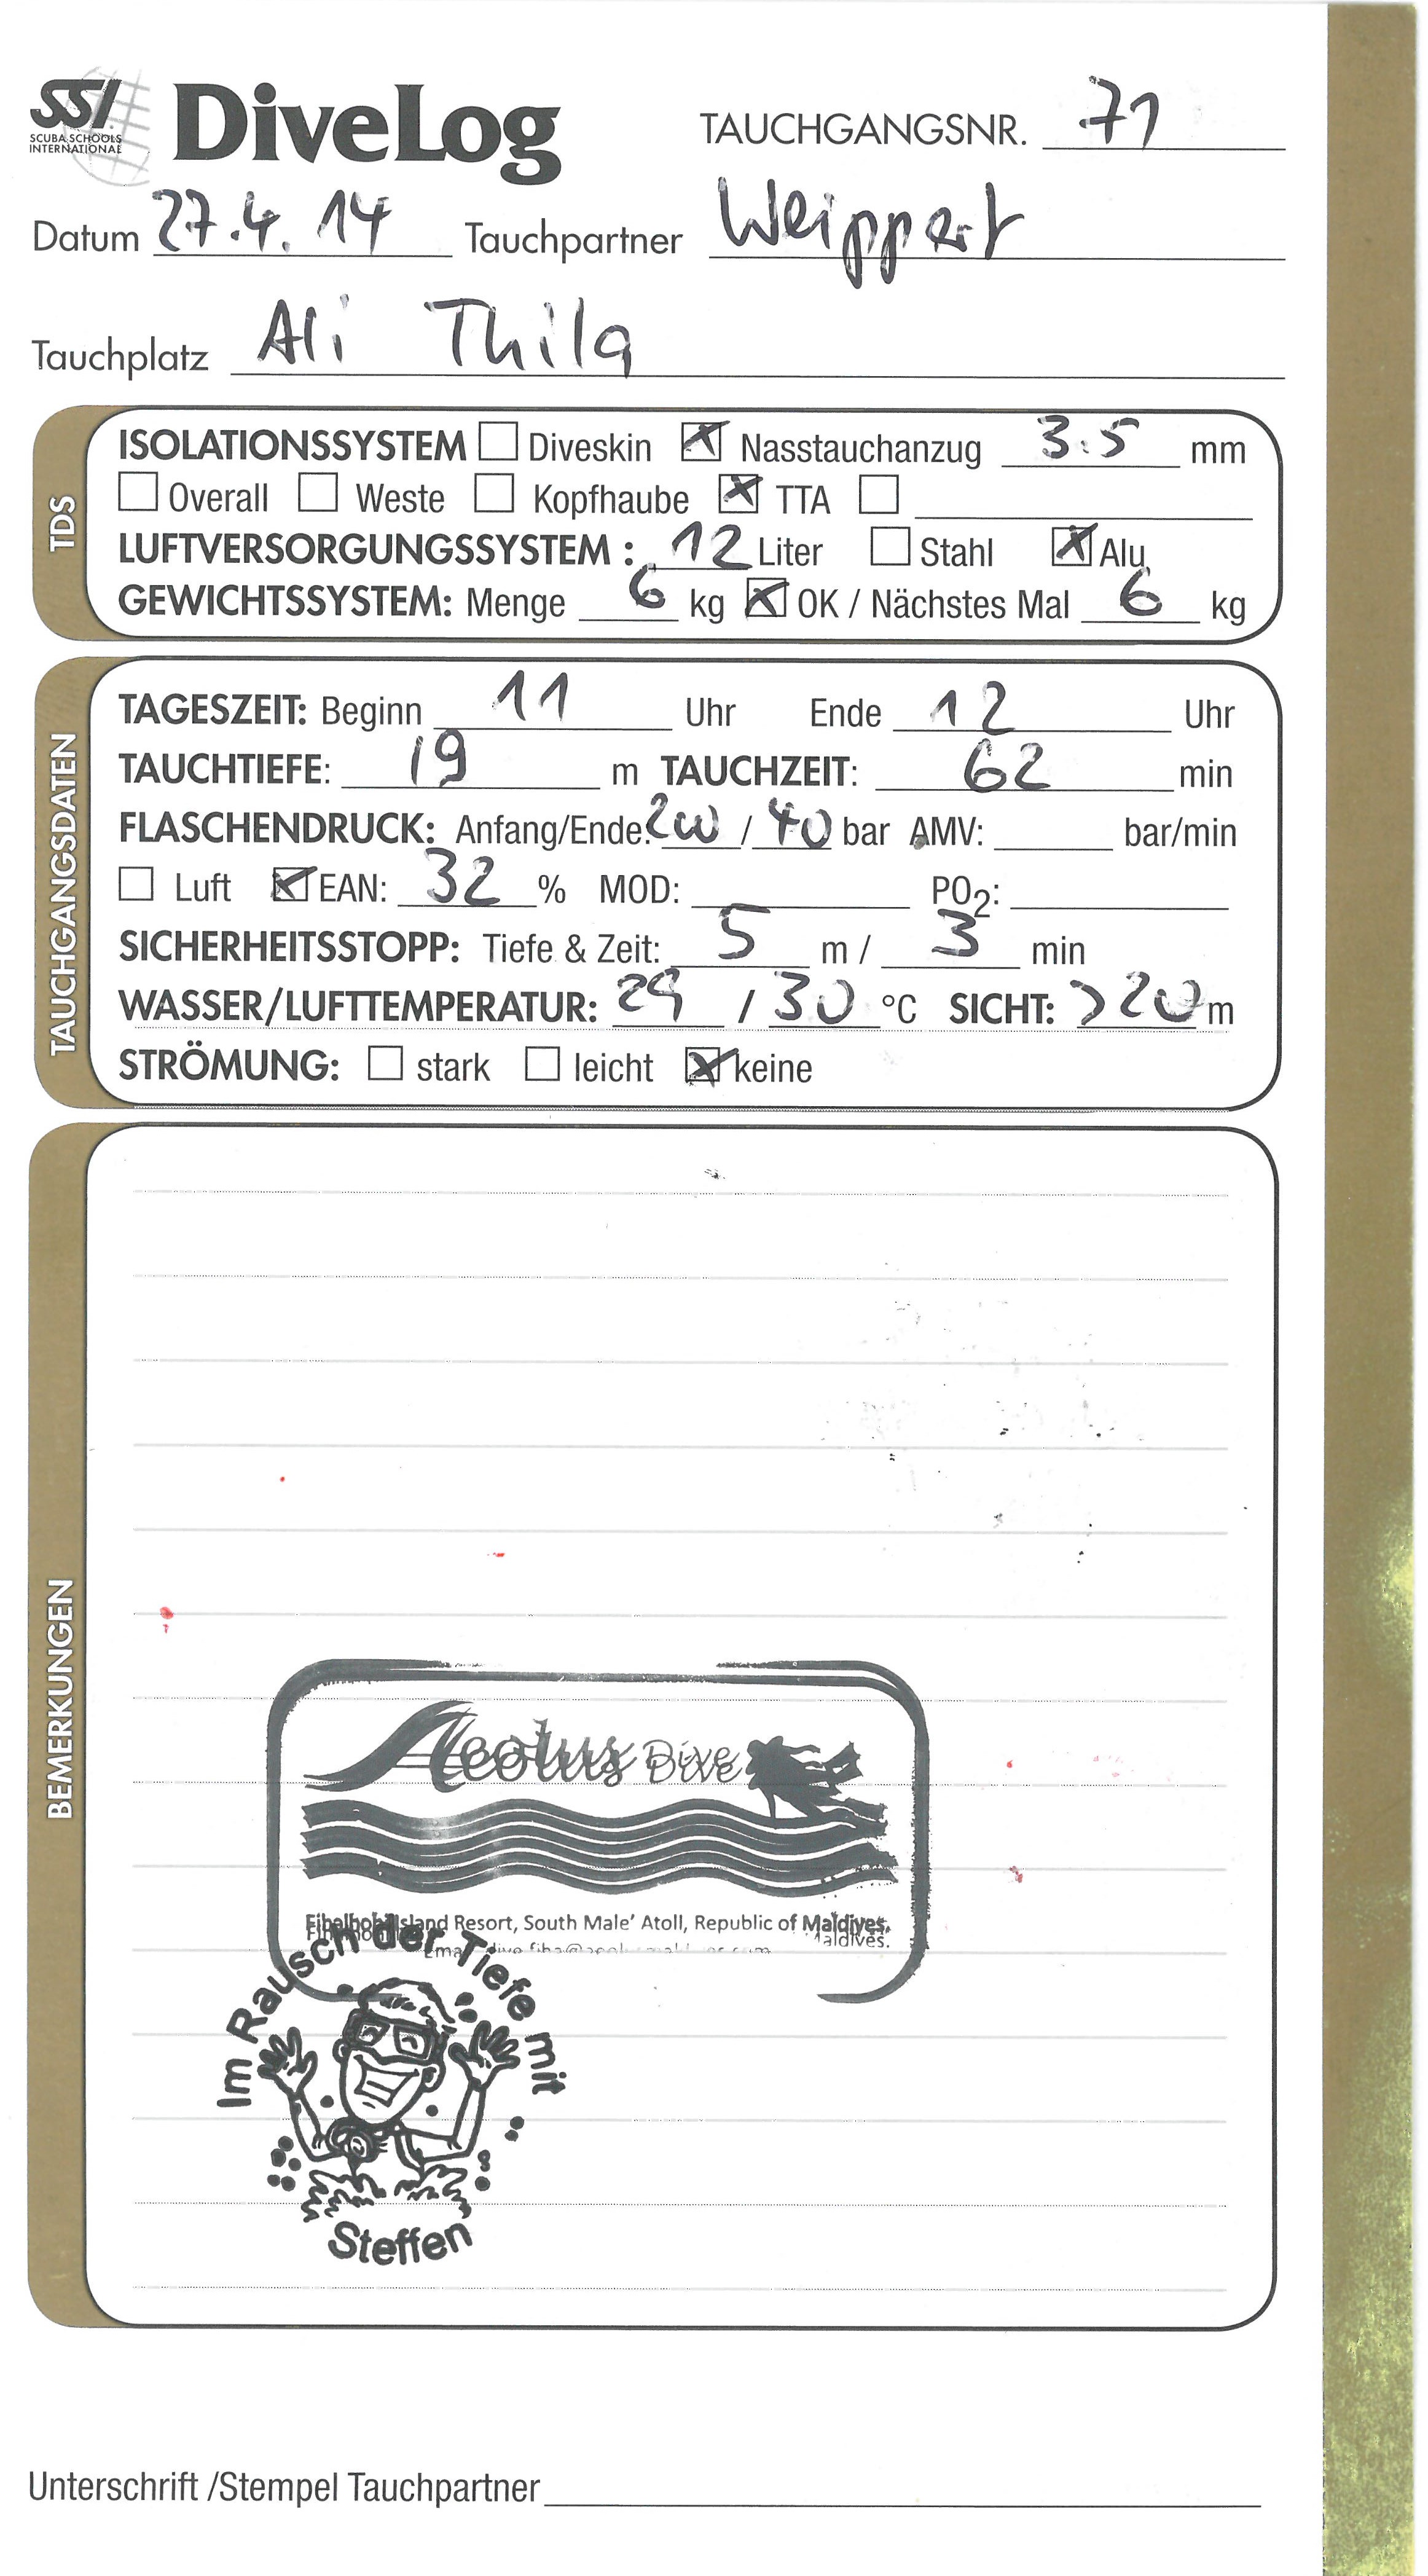 SSI DiveLog TAUCHGANGSNR. 71
SCUBA SCHOOLS
INTERNATIONAL
Datum 27.4.14 Tauchpartner Weippert
Tauchplatz Ali Thila
TDS
ISOLATIONSSYSTEM Diveskin Nasstauchanzug 3.5 mm
Overall Weste Kopfhaube TTA
LUFTVERSORGUNGSSYSTEM : 12 Liter Stahl Alu
GEWICHTSSYSTEM: Menge 6 kg OK / Nächstes Mal 6 kg
TAUCHGANGSDATEN
TAGESZEIT: Beginn 11 Uhr Ende 12 Uhr
TAUCHTIEFE: 19 m TAUCHZEIT: 62 min
FLASCHENDRUCK: Anfang/Ende: 200 / 40 bar AMV: bar/min
Luft EAN: 32 % MOD: PO2:
SICHERHEITSSTOPP: Tiefe & Zeit: 5 m / 3 min
WASSER/LUFTTEMPERATUR: 29 / 30 °C SICHT: >20 m
STRÖMUNG: stark leicht keine
BEMERKUNGEN
Aeolus Dive
Island Resort, South Male' Atoll, Republic of Maldives.
Im Rausch der Tiefe mit
Steffen
Unterschrift /Stempel Tauchpartner